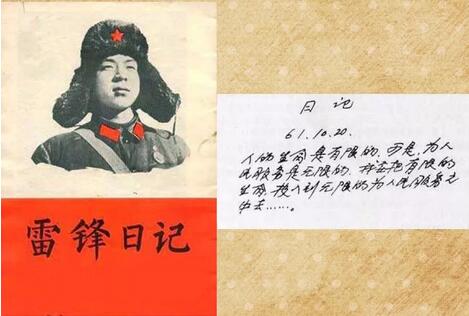 雷锋日记
日记
61.10.20.
人的生命是有限的,可是,为人
民服务是无限的,我要把有限的
生命,投入到无限的为人民服务之
中去……。